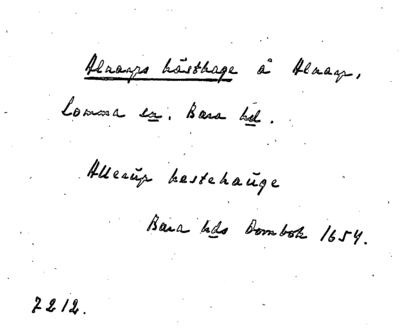 Alnarps hästhage å Alnarp,
Lomma sn, Bara hd.
Allerúp hestehaúge
Bara hds Dombok 1654.
7212.